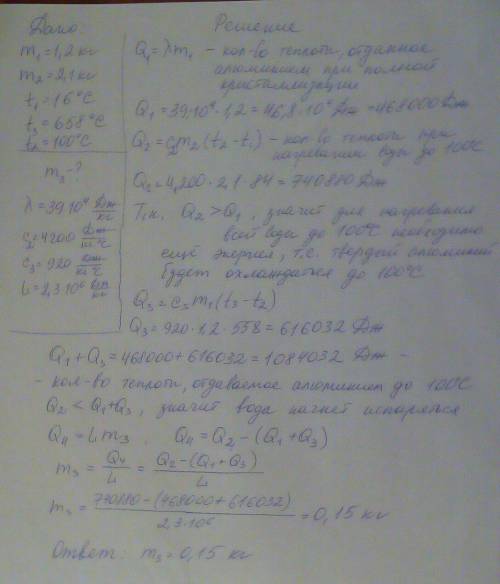 Дано:
m₁ = 1,2 кг
m₂ = 2,1 кг
t₁ = 16 °C
t₃ = 658 °C
t₂ = 100 °C
m₃ - ?
λ = 39·10⁴ Дж/кг
c₂ = 4200 Дж/кг °C
c₃ = 920 Дж/кг °C
L = 2,3·10⁶ Дж/кг
Решение
Q₁ = λm₁ – кол-во теплоты, отданное
алюминием при полной
кристаллизации
Q₁ = 39·10⁴·1,2 = 46,8·10⁴ Дж = 468000 Дж
Q₂ = c₂m₂(t₂ - t₁) – кол-во теплоты при
нагревании воды до 100°C
Q₂ = 4,200·2,1·84 = 740880 Дж
Т.к. Q₂ > Q₁, значит для нагревания
всей воды до 100°C необходимо
ещё энергия, т.е. твердый алюминий
будет охлаждаться до 100°C
Q₃ = c₃m₁(t₃ - t₂)
Q₃ = 920·1,2·558 = 616032 Дж
Q₁ + Q₃ = 468000 + 616032 = 1084032 Дж -
- кол-во теплоты, отдаваемое алюминием до 100°C
Q₂ < Q₁ + Q₃, значит вода начнет испаряться
Q₄ = Lm₃, Q₄ = Q₂ - (Q₁ + Q₃)
m₃ = Q₄/L = Q₂ - (Q₁ + Q₃)/L
m₃ = 740880 - (468000 + 616032)/2,3·10⁶ = 0,15 кг
Ответ: m₃ = 0,15 кг